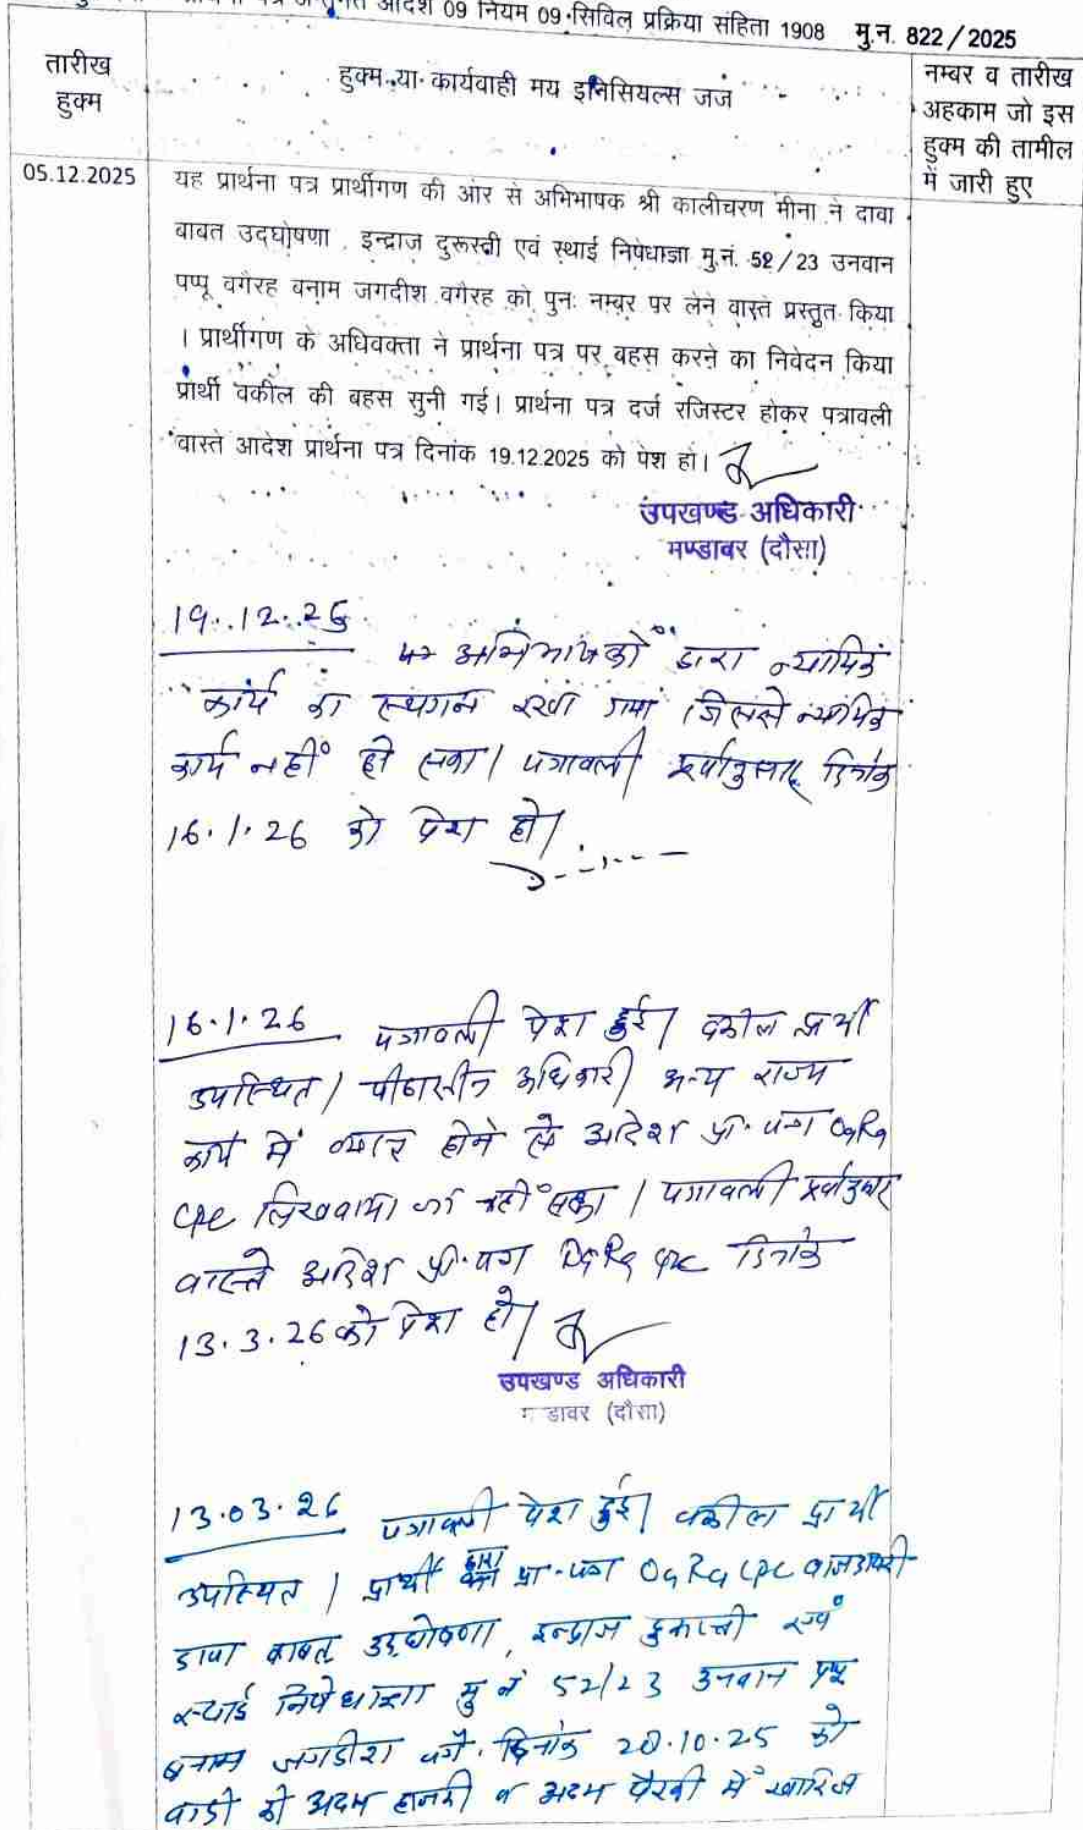 आदेश 09 नियम 09 सिविल प्रक्रिया संहिता 1908 मु.न. 822/2025
तारीख हुक्म
हुक्म या कार्यवाही मय इनिसियल्स जज
नम्बर व तारीख
अहकाम जो इस
हुक्म की तामील
में जारी हुए
05.12.2025
यह प्रार्थना पत्र प्रार्थीगण की ओर से अभिभाषक श्री कालीचरण मीना ने दावा
बाबत उदघोषणा, इन्द्राज दुरूस्ती एवं स्थाई निषेधाज्ञा मु.नं. 52/23 उनवान
पप्पू वगैरह बनाम जगदीश वगैरह को पुनः नम्बर पर लेने वास्ते प्रस्तुत किया
। प्रार्थीगण के अधिवक्ता ने प्रार्थना पत्र पर बहस करने का निवेदन किया
प्रार्थी वकील की बहस सुनी गई। प्रार्थना पत्र दर्ज रजिस्टर होकर पत्रावली
वास्ते आदेश प्रार्थना पत्र दिनांक 19.12.2025 को पेश हो।
उपखण्ड अधिकारी
मण्डावर (दौसा)
19.12.25
अभिभाषकों द्वारा न्यायिक
कार्य का स्थगन रखा गया जिससे न्यायिक
कार्य नहीं हो सका। पत्रावली पूर्वानुसार दिनांक
16.1.26 को पेश हो।
16.1.26 पत्रावली पेश हुई। वकील प्रार्थी
उपस्थित। पीठासीन अधिकारी अन्य राज्य
कार्य में व्यस्त होने से आदेश प्रा. पत्र O9R9
CPC लिखवाया जा नहीं सका। पत्रावली पूर्वानुसार
वास्ते आदेश प्रा. पत्र O9R9 CPC दिनांक
13.3.26 को पेश हो।
उपखण्ड अधिकारी
मण्डावर (दौसा)
13.03.26 पत्रावली पेश हुई। वकील प्रार्थी
उपस्थित। प्रार्थी द्वारा प्रा. पत्र O9R9 CPC
दावा बाबत उदघोषणा, इन्द्राज दुरूस्ती एवं
स्थाई निषेधाज्ञा मु नं 52/23 उनवान पप्पू
बनाम जगदीश वगै. दिनांक 28.10.25 को
वादी को अदम हाजरी व अदम पैरवी में खारिज